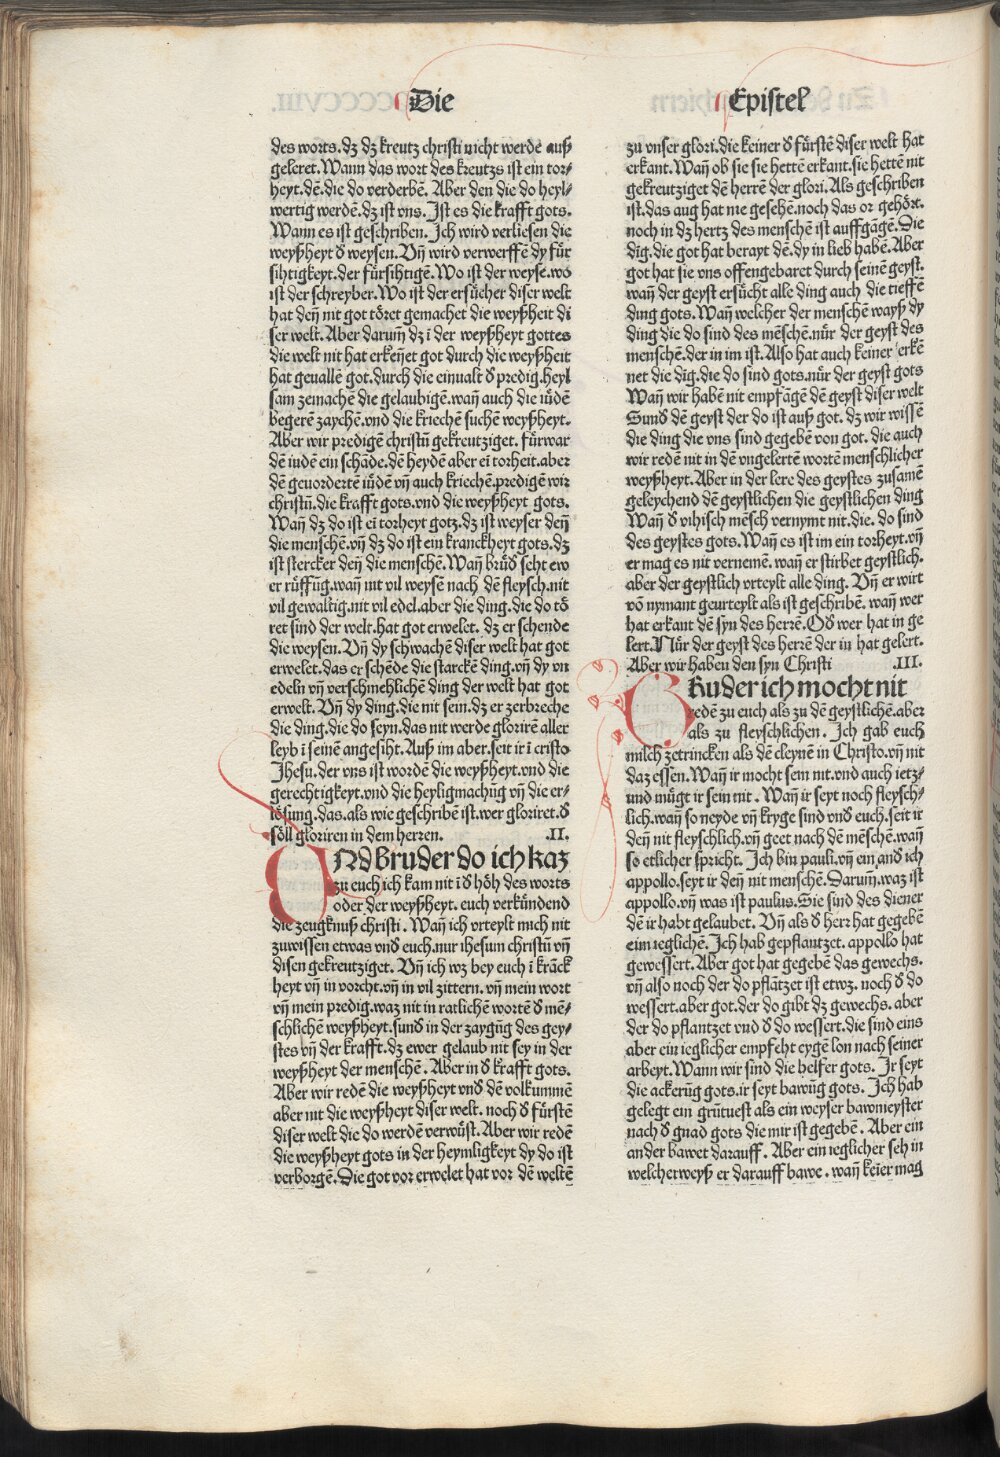 Die
Epistel
des worts.dz dz kreutz christi nicht werde auß
geleret.Wann das wort des kreutzs ist ein tor⸗
heyt.dē.die do verderbē. Aber den die do heyl⸗
wertig werdē.dz ist vns. Ist es die krafft gots.
Wann es ist geschriben. Ich wird verliesen die
weyßheyt ď weysen. Vn̄ wird verwerffē dy für
sihtigkeyt.der fürsihtigē.Wo ist der weyse.wo
ist der schreyber.Wo ist der ersücher diser welt
hat den̄ nit got tŏret gemachet die weyßheit di
ser welt. Aber darum̄ dz ī der weyßheyt gottes
die welt nit hat erken̄et got durch die weyßheit
hat geuallē got.durch die einualt ď predig.heyl
sam zemachē die gelaubigē.wan̄ auch die iüdē
begerē zaychē.vnd die kriechē suchē weyßheyt.
Aber wir predigē christū gekreutziget. fürwar
dē iudē ein schāde.dē heydē aber ei torheit.aber
dē geuordertē iüdē vn̄ auch kriechē.predigē wir
christū.die krafft gots.vnd die weyßheyt gots.
Wan̄ dz do ist ei torheyt gotz.dz ist weyser den̄
die menschē.vn̄ dz do ist ein kranckheyt gots.dz
ist stercker den̄ die menschē.Wan̄ brüď seht ew
er rüffūg.wan̄ nit vil weysē nach dē fleysch.nit
vil gewaltig.nit vil edel.aber die ding.die do tŏ
ret sind der welt.hat got erwelet. dz er schende
die weysen. Vn̄ dy schwachē diser welt hat got
erwelet.das er schēde die starckē ding.vn̄ dy vn
edeln vn̄ verschmehlichē ding der welt hat got
erwelt. Vn̄ dy ding.die nit sein.dz er zerbreche
die ding.die do seyn.das nit werde glorirē aller
leyb ī seinē angesiht. Auß im aber.seit ir ī cristo
Jhesu.der vns ist wordē die weyßheyt.vnd die
gerechtigkeyt.vnd die heyligmachūg vn̄ die er⸗
lŏsung.das.als wie geschribē ist.wer gloriret.ď
sŏll gloriren in dem herzen. .II.
VNd bruder do ich kaz
zu euch ich kam nit ī ď hŏh des worts
oder der weyßheyt. euch verkündend
die zeugknuß christi. Wan̄ ich vrteylt mich nit
zuwissen etwas vnď euch.nur ihesum christū vn̄
disen gekreutziget. Vn̄ ich wz bey euch ī krāck
heyt vn̄ in vorcht.vn̄ in vil zittern. vn̄ mein wort
vn̄ mein predig.waz nit in ratlichē wortē ď mē⸗
schlichē weyßheyt.sunď in der zaygūg des gey⸗
stes vn̄ der krafft.dz ewer gelaub nit sey in der
weyßheyt der menschē. Aber in ď krafft gots.
Aber wir redē die weyßheyt vnď dē volkummē
aber nit die weyßheyt diser welt. noch ď fürstē
diser welt die do werdē verwüst. Aber wir redē
die weyßheyt gots in der heymligkeyt dy do ist
verborgē.Die got vor erwelet hat vor dē weltē
zu vnser glori.die keiner ď fürstē diser welt hat
erkant.Wan̄ ob sie sie hettē erkant.sie hettē nit
gekreutziget dē herrē der glori.Als geschriben
ist.das aug hat nie gesehē.noch das or gehŏrt.
noch in dz hertz des menschē ist auffgāgē.Die
dīg.die got hat berayt dē.dy in lieb habē.Aber
got hat sie vns offengebaret durch seinē geyst.
wan̄ der geyst ersücht alle ding auch die tieffē
ding gots.Wan̄ welcher der menschē wayß dy
ding die do sind des mēschē.nür der geyst des
menschē.der in im ist.Also hat auch keiner erkē
net die dīg.die do sind gots.nür der geyst gots
Wan̄ wir habē nit empfāgē dē geyst diser welt
Sunď dē geyst der do ist auß got. dz wir wissē
die ding die vns sind gegebē von got. die auch
wir redē nit in dē vngelertē wortē menschlicher
weyßheyt. Aber in der lere des geystes zusamē
geleychend dē geystlichen die geystlichen ding
Wan̄ ď vihisch mēsch vernymt nit.die. do sind
des geystes gots.Wan̄ es ist im ein torheyt.vn̄
er mag es nit vernemē. wan̄ er stirbet geystlich.
aber der geystlich vrteylt alle ding. Vn̄ er wirt
vō nymant geurteylt als ist geschribē. wan̄ wer
hat erkant dē syn des herrē.Oď wer hat in ge
lert.Nür der geyst des herrē der in hat gelert.
Aber wir haben den syn Christi .III.
BRuder ich mocht nit
redē zu euch als zu dē geystlichē.aber
als zu fleyschlichen. Ich gab euch
milch zetrincken als dē cleynē in Christo.vn̄ nit
daz essen.Wan̄ ir mocht sein nit.vnd auch ietz⸗
und mügt ir sein nit. Wan̄ ir seyt noch fleysch⸗
lich.wan̄ so neyde vn̄ kryge sind vnď euch.seit ir
den̄ nit fleyschlich.vn̄ geet nach dē mēschē.wan̄
so etlicher spricht. Ich bin pauli.vn̄ ein and ich
appollo.seyt ir den̄ nit menschē.Darum̄.waz ist
appollo.vn̄ was ist paulus.Sie sind des diener
dē ir habt gelaubet. Vn̄ als ď herr hat gegebē
eim ieglichē.Ich hab gepflantzet. appollo hat
gewessert.Aber got hat gegebē das gewechs.
vn̄ also noch der do pflātzet ist etwz. noch ď do
wessert.aber got.der do gibt dz gewechs. aber
der do pflantzet vnd ď do wessert.die sind eins
aber ein ieglicher empfeht eygē lon nach seiner
arbeyt.Wann wir sind die helfer gots. Ir seyt
die ackerūg gots.ir seyt bawūg gots. Ich hab
gelegt ein grūtuest als ein weyser bawmeyster
nach ď gnad gots die mir ist gegebē. Aber ein
ander bawet darauff. Aber ein ieglicher seh in
welcher weyß er darauff bawe. wan̄ keier mag